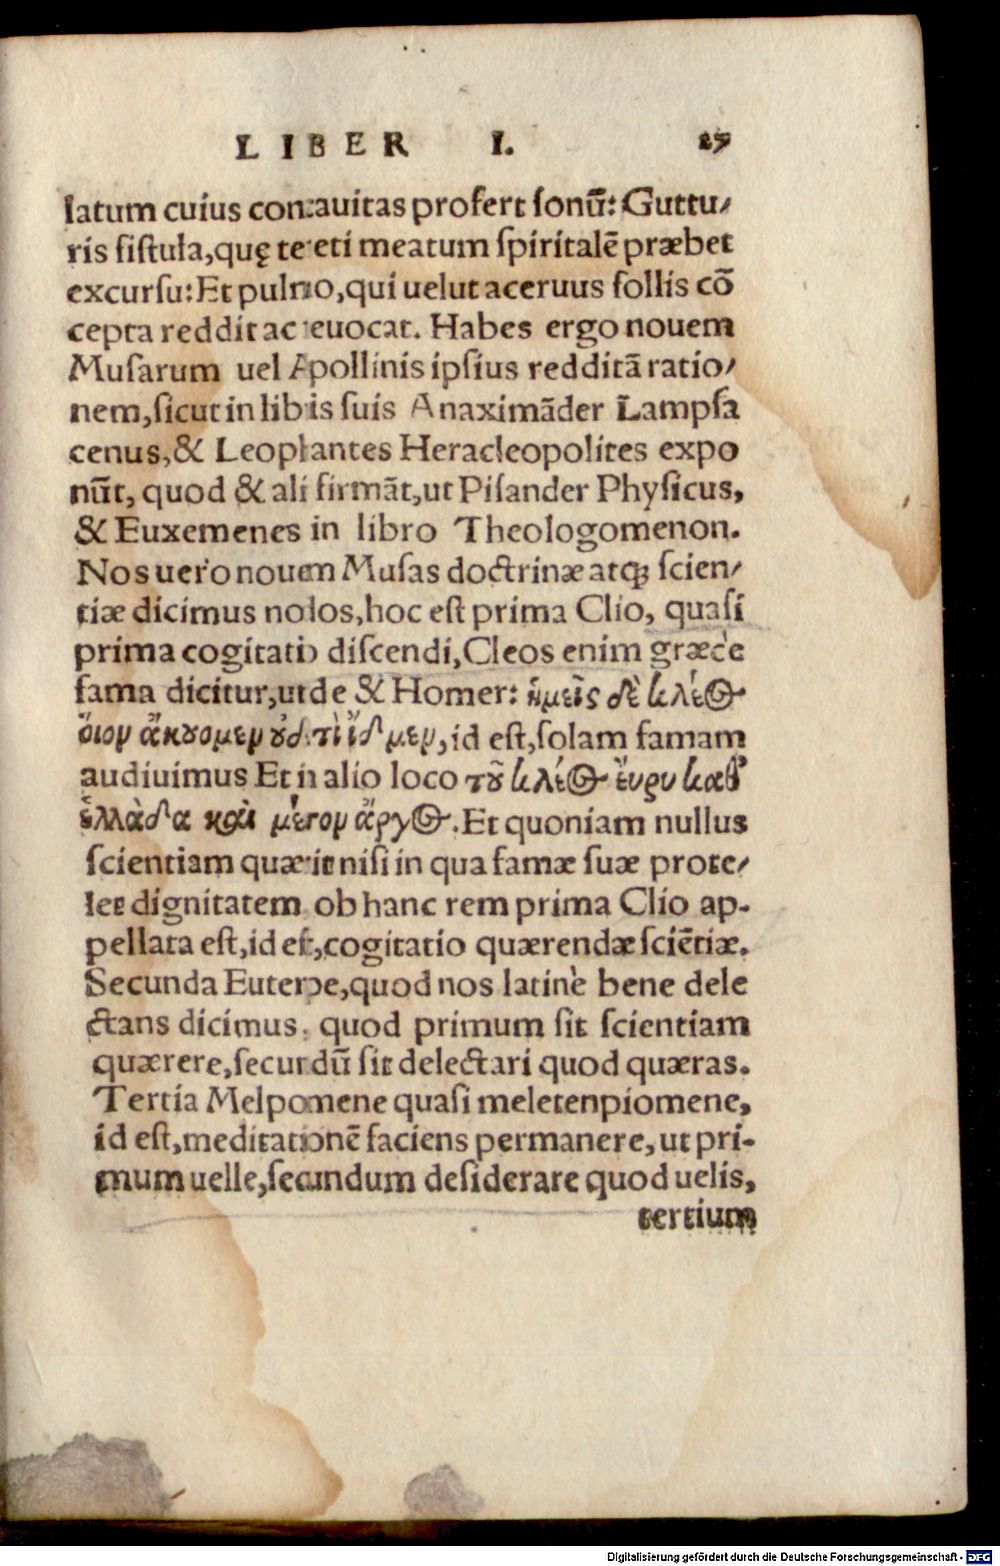 LIBER I. 27
latum cuius concauitas profert ſonū: Guttu/
ris fiſtula, quę tereti meatum ſpiritalē præbet
excurſu: Et pulmo, qui uelut aceruus follis cō
cepta reddit ac reuocat. Habes ergo nouem
Muſarum uel Apollinis ipſius redditā ratio/
nem, ſicut in libris ſuis Anaximāder Lampſa
cenus, & Leophantes Heracleopolites expo
nūt, quod & alii firmāt, ut Piſander Phyſicus,
& Euxemenes in libro Theologomenon.
Nos uero nouem Muſas doctrinæ atq; ſcien/
tiæ dicimus modos, hoc eſt prima Clio, quaſi
prima cogitatio diſcendi, Cleos enim græcè
fama dicitur, unde & Homer: ἡμεῖς δὲ κλέΘ
ὄιον ἀκȣομεν ȣδ τὶ ἴδμεν, id eſt, ſolam famam
audiuimus Et in alio loco τȣ͂ κλέΘ ἔυρυ καθ'
ἑλλὰδα καὶ μέσον ἄργΘ. Et quoniam nullus
ſcientiam quærit niſi in qua famæ ſuæ prote/
let dignitatem ob hanc rem prima Clio ap-
pellata eſt, id eſt, cogitatio quærendæ ſciētiæ.
Secunda Euterpe, quod nos latinè bene dele
ctans dicimus, quod primum ſit ſcientiam
quærere, ſecundū ſit delectari quod quæras.
Tertia Melpomene quaſi meletenpiomene,
id eſt, meditationē faciens permanere, ut pri-
mum uelle, ſecundum deſiderare quod uelis,
tertium
Digitalisierung gefördert durch die Deutsche Forschungsgemeinschaft - DFG